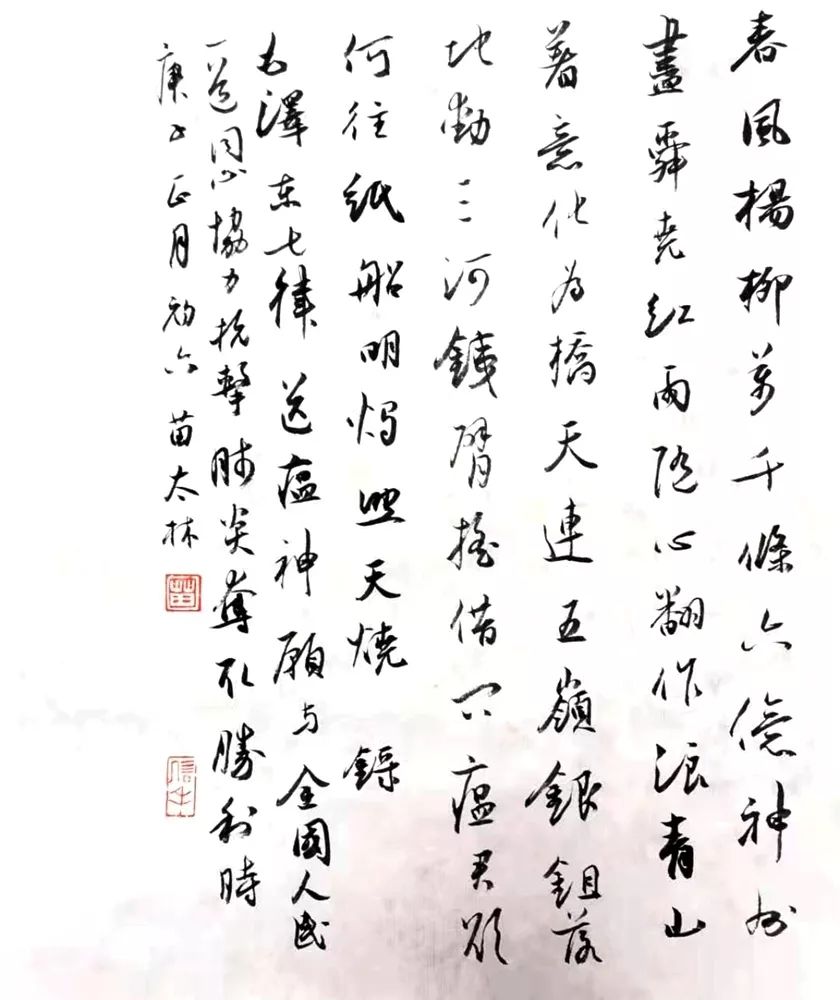 春風楊柳萬千條六億神州
盡舜堯紅雨隨心翻作浪青山
著意化为橋天連五嶺銀鉏落
地動三河鐵臂搖借问瘟君欲
何往紙船明燭照天燒 錄
毛澤東七律送瘟神願与全國人民
一道同心協力抗擊肺炎奪取勝利時
庚子正月初六苗太林
苗